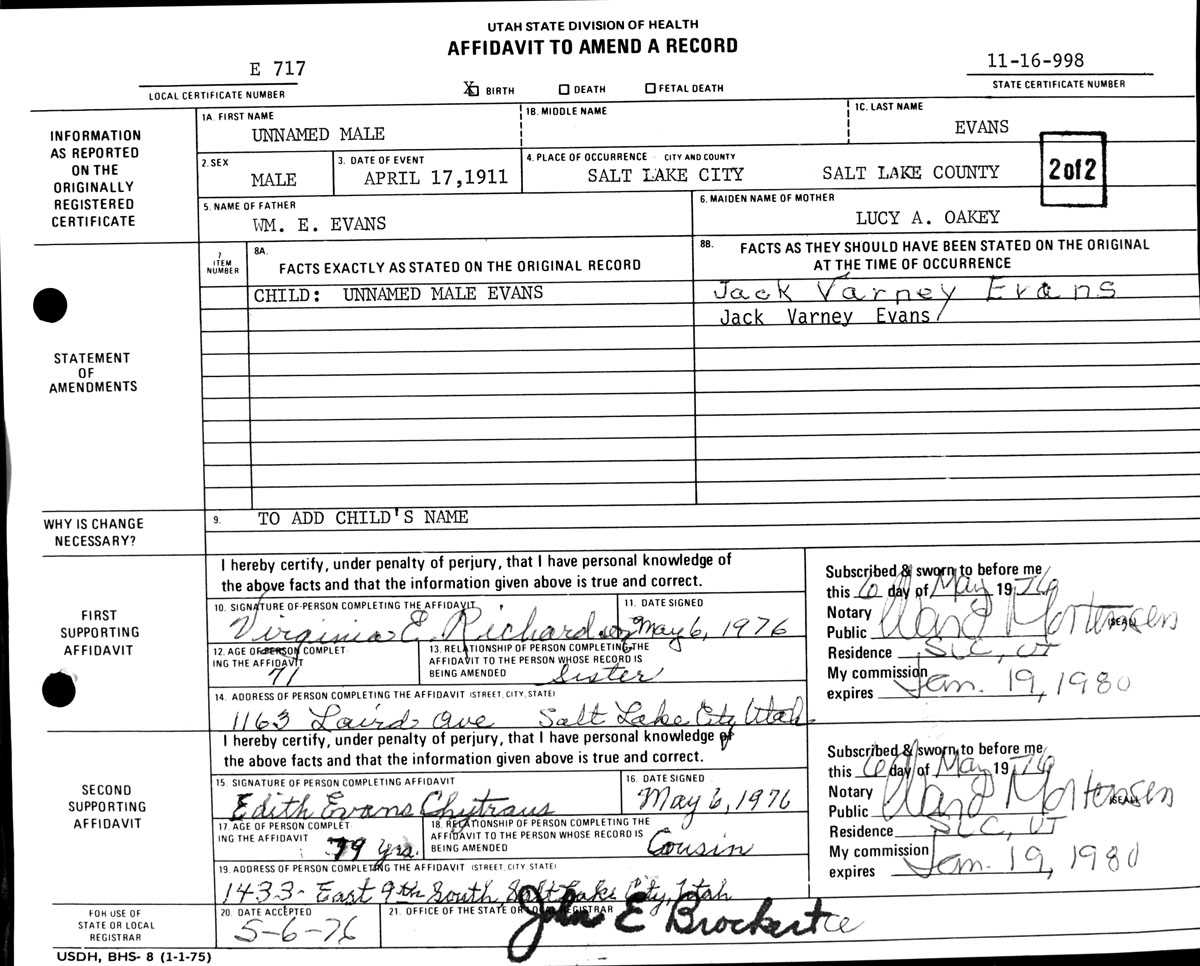 UTAH STATE DIVISION OF HEALTH
AFFIDAVIT TO AMEND A RECORD
E 717
LOCAL CERTIFICATE NUMBER
X BIRTH DEATH FETAL DEATH
11-16-998
STATE CERTIFICATE NUMBER
INFORMATION
AS REPORTED
ON THE
ORIGINALLY
REGISTERED
CERTIFICATE
1A. FIRST NAME
UNNAMED MALE
1B. MIDDLE NAME
1C. LAST NAME
EVANS
2. SEX
MALE
3. DATE OF EVENT
APRIL 17,1911
4. PLACE OF OCCURRENCE CITY AND COUNTY
SALT LAKE CITY SALT LAKE COUNTY
2 of 2
5. NAME OF FATHER
WM. E. EVANS
6. MAIDEN NAME OF MOTHER
LUCY A. OAKEY
STATEMENT
OF
AMENDMENTS
7
ITEM
NUMBER
8A.
FACTS EXACTLY AS STATED ON THE ORIGINAL RECORD
8B. FACTS AS THEY SHOULD HAVE BEEN STATED ON THE ORIGINAL
AT THE TIME OF OCCURRENCE
CHILD: UNNAMED MALE EVANS
Jack Varney Evans
Jack Varney Evans
WHY IS CHANGE
NECESSARY?
9. TO ADD CHILD'S NAME
FIRST
SUPPORTING
AFFIDAVIT
I hereby certify, under penalty of perjury, that I have personal knowledge of
the above facts and that the information given above is true and correct.
10. SIGNATURE OF PERSON COMPLETING THE AFFIDAVIT
Virginia E. Richardson
11. DATE SIGNED
May 6, 1976
12. AGE OF PERSON COMPLET
ING THE AFFIDAVIT
71
13. RELATIONSHIP OF PERSON COMPLETING THE
AFFIDAVIT TO THE PERSON WHOSE RECORD IS
BEING AMENDED
Sister
14. ADDRESS OF PERSON COMPLETING THE AFFIDAVIT (STREET, CITY, STATE)
1163 Laird Ave Salt Lake City Utah
Subscribed & sworn to before me
this 6th day of May 1976
Notary
Public Ward Mortensen (SEAL)
Residence SLC, UT
My commission
expires Jan. 19, 1980
SECOND
SUPPORTING
AFFIDAVIT
I hereby certify, under penalty of perjury, that I have personal knowledge of
the above facts and that the information given above is true and correct.
15. SIGNATURE OF PERSON COMPLETING AFFIDAVIT
Edith Evans Chytraus
16. DATE SIGNED
May 6, 1976
17. AGE OF PERSON COMPLET
ING THE AFFIDAVIT
79 yrs.
18. RELATIONSHIP OF PERSON COMPLETING THE
AFFIDAVIT TO THE PERSON WHOSE RECORD IS
BEING AMENDED
Cousin
19. ADDRESS OF PERSON COMPLETING THE AFFIDAVIT (STREET, CITY, STATE)
1433- East 9th South, Salt Lake City, Utah
Subscribed & sworn to before me
this 6th day of May 1976
Notary
Public Ward Mortensen (SEAL)
Residence SLC, UT
My commission
expires Jan. 19, 1980
FOR USE OF
STATE OR LOCAL
REGISTRAR
20. DATE ACCEPTED
5-6-76
21. OFFICE OF THE STATE OR LOCAL REGISTRAR
John E Brockert
USDH, BHS- 8 (1-1-75)